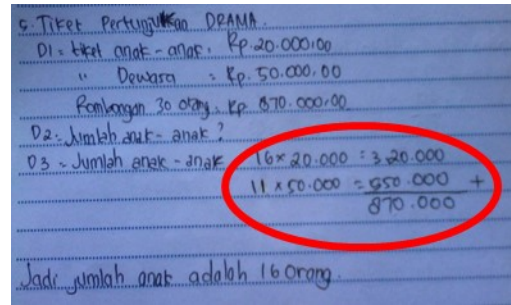 5. Tiket Pertunjukan DRAMA.
D1 = tiket anak-anak : Rp. 20.000,00
" Dewasa : Rp. 50.000,00
Rombongan 30 orang : Rp 870.000,00
D2 = Jumlah anak-anak ?
D3 = Jumlah anak-anak 16 x 20.000 = 3.20.000
11 x 50.000 = 550.000 +
870.000
Jadi jumlah anak adalah 16 orang.